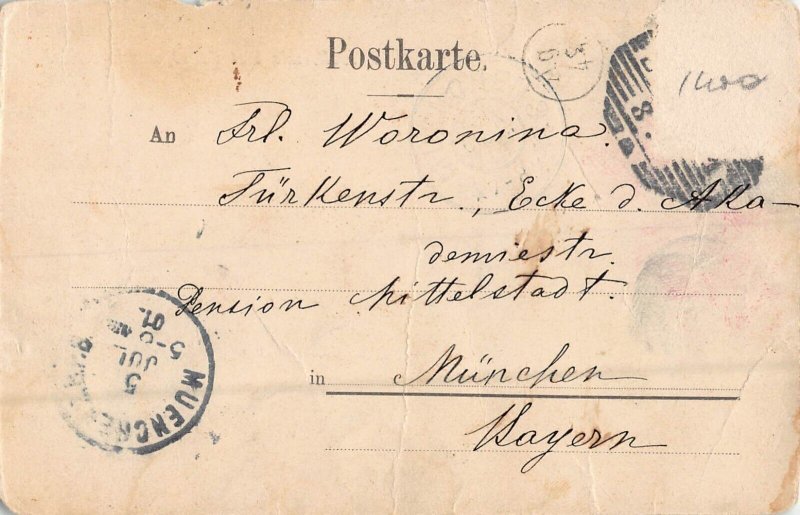 Postkarte.
1400
An Frl. Woronina.
Türkenstr., Ecke d. Aka-
demiestr.
Pension Mittelstadt.
in München
Bayern
MUENCHEN
5
JUL
01.